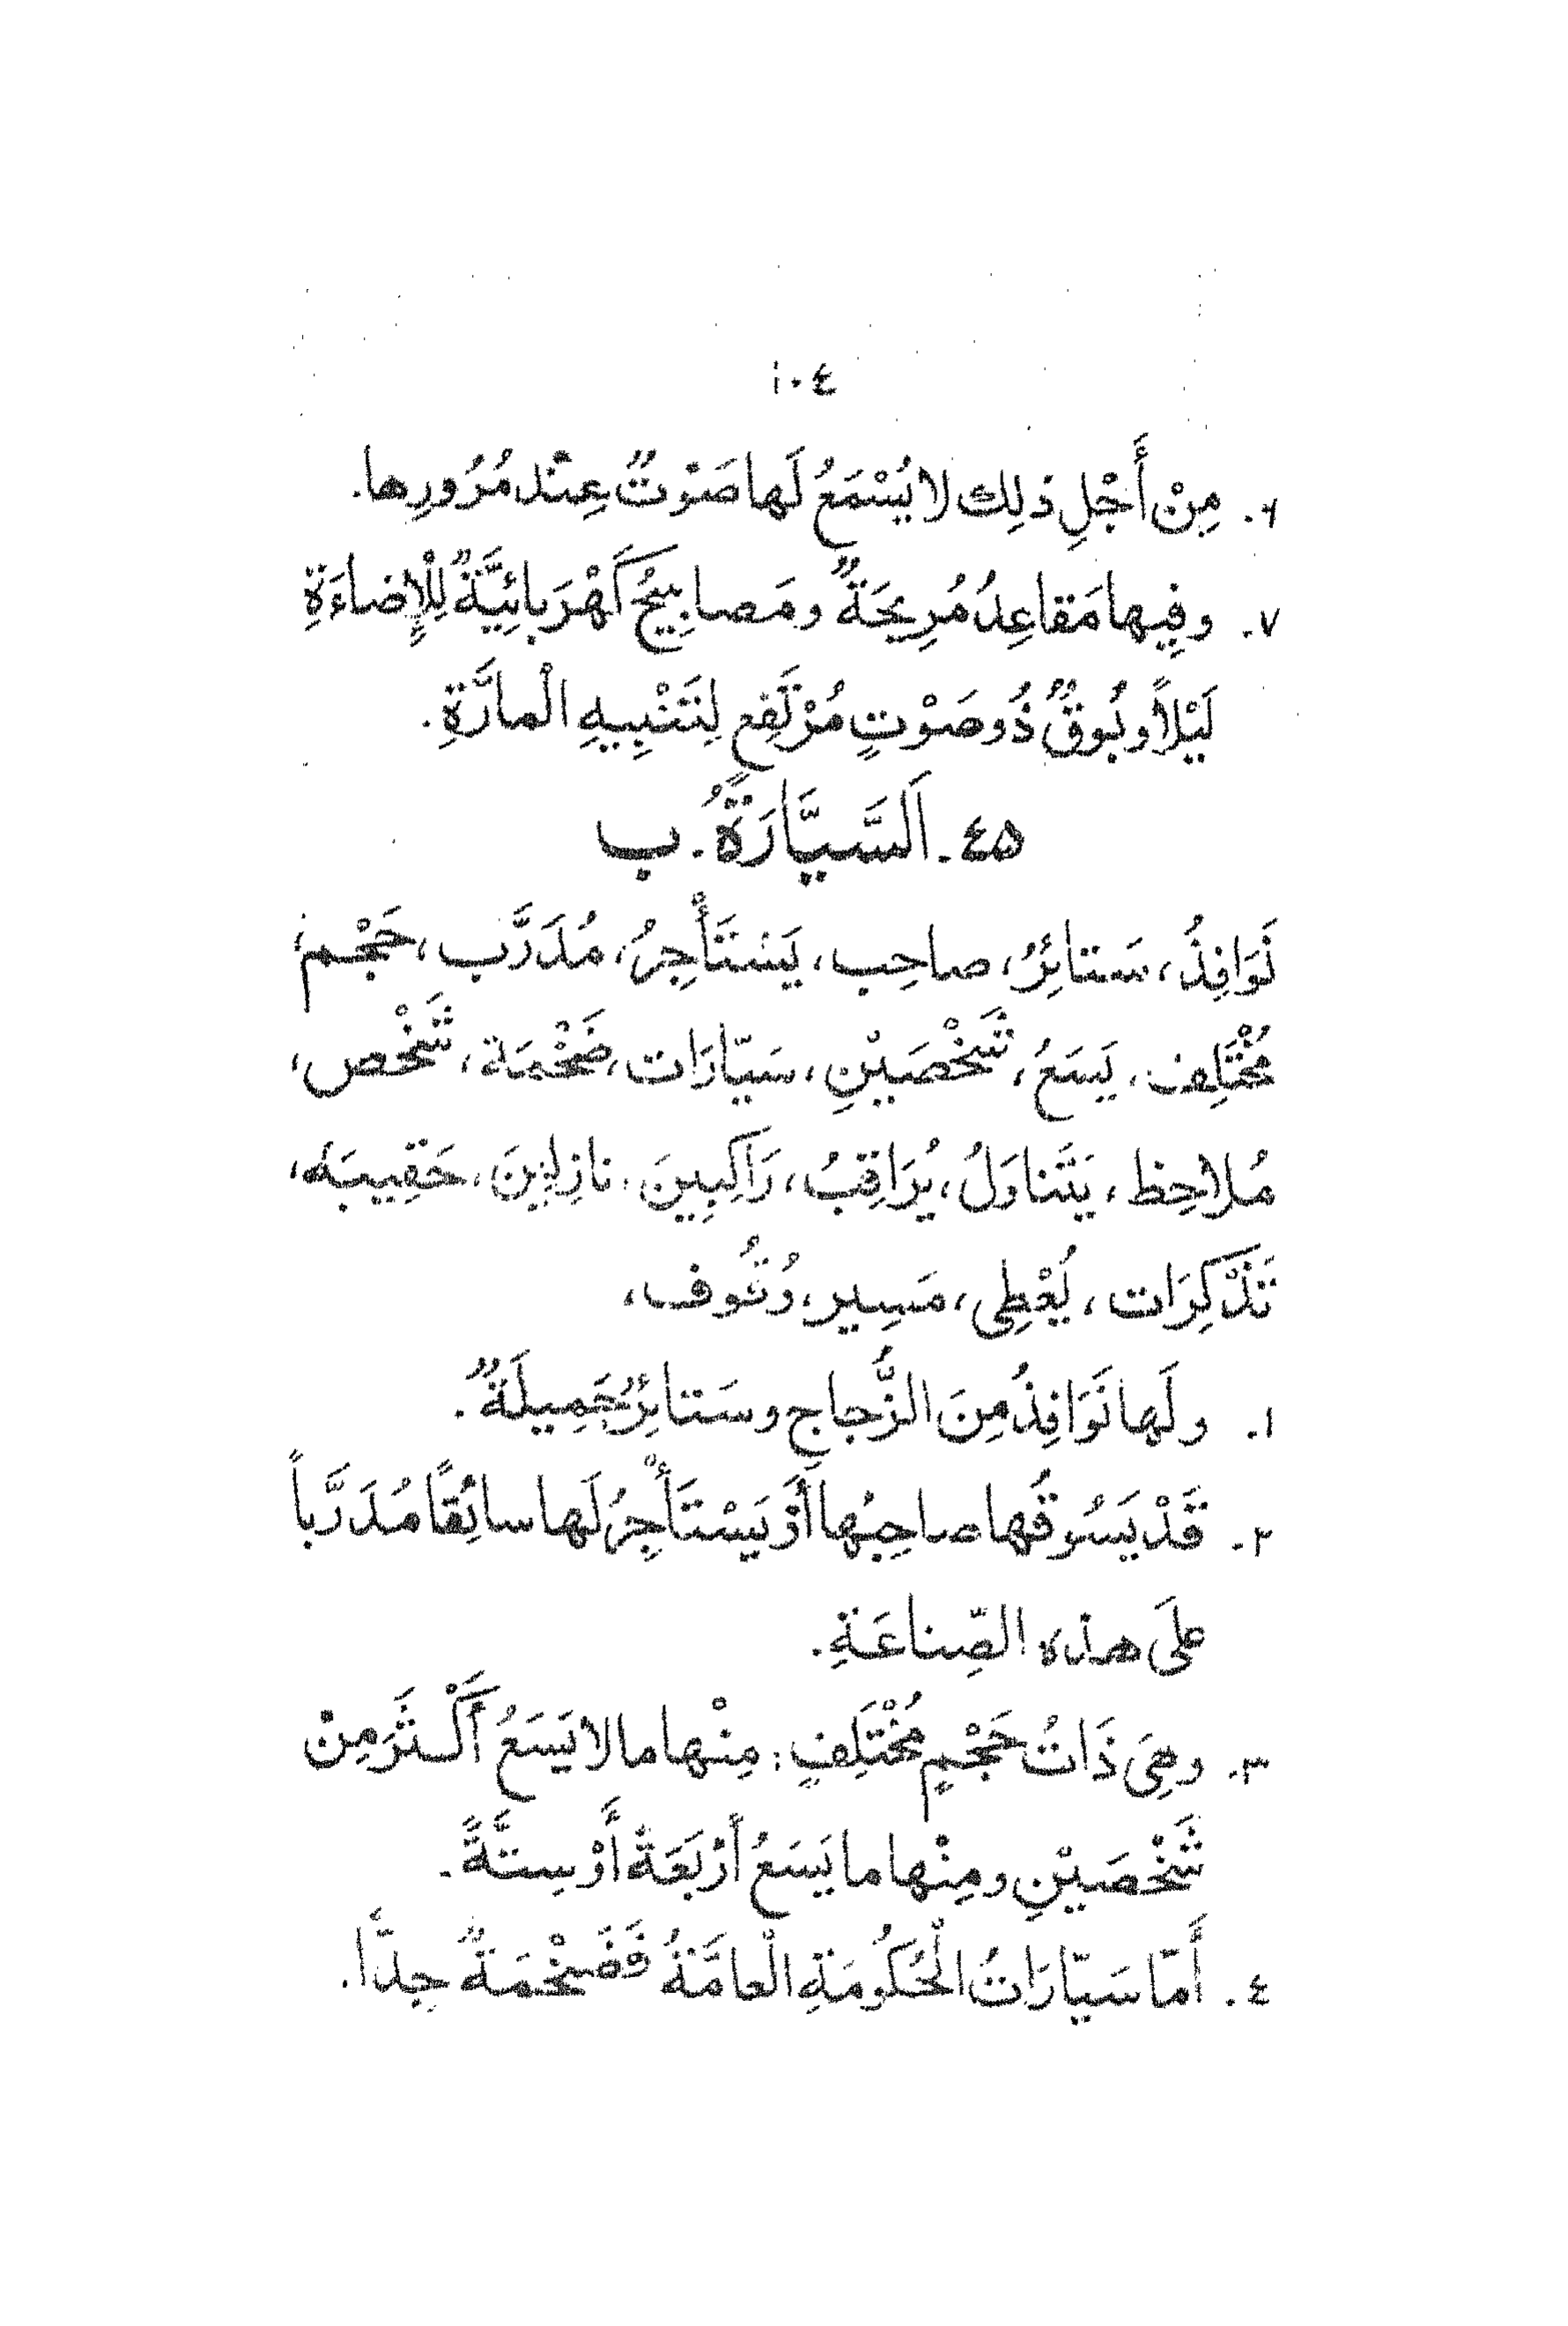 ١٠٤
٦. مِنْ أَجْلِ ذلِك لا يُسْمَعُ لَها صَوْتٌ عِنْد مُرُورِها.
٧. وفِيها مَقاعِدُ مُرِيحَةٌ ومَصابِيحُ كَهْرَبائِيَّةٌ لِلْإِضاءَةِ
لَيْلاً وبُوقٌ ذُو صَوْتٍ مُرْتَفِعٍ لِتَنْبِيهِ الْمارَّةِ.
٤٥. اَلسَّيَّارَةُ. ب
نَوَافِذُ، سَتائِرُ، صاحِب، يَسْتَأْجِرُ، مُدَرَّب، حَجْم،
مُخْتَلِف، يَسَعُ، شَخْصَيْنِ، سَيّارَات، ضَخْمَة، شَخْص،
مُلاحِظ، يَتَناوَلُ، يُرَاقِبُ، رَاكِبِينَ، نازِلِينَ، حَقِيبَة،
تَذْكِرَات، يُعْطِى، مَسِير، وُقُوف،
١. ولَها نَوَافِذُ مِنَ الزُّجاجِ وسَتائِرُ جَمِيلَةٌ.
٢. قَدْ يَسُوقُها صاحِبُها أَوْ يَسْتَأْجِرُ لَها سائِقًا مُدَرَّباً
علَى هذه الصِّناعَةِ.
٣. وهِىَ ذَاتُ حَجْمٍ مُخْتَلِفٍ: مِنْها ما لا يَسَعُ أَكْثَرَ مِنْ
شَخْصَيْنِ ومِنْها ما يَسَعُ أَرْبَعَةً أَوْ سِتَّةً.
٤. أَمّا سَيّارَاتُ الْحُكُومَةِ الْعامَّةُ فَضَخْمَةٌ جِدًّا.